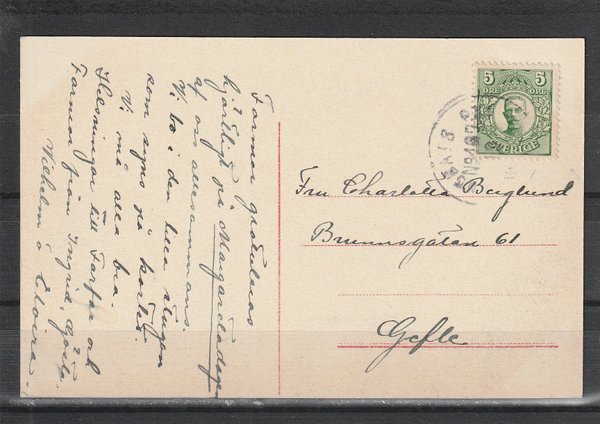 Farmor gratuleras
hjärtligt på Margaretadagen
af oss allesammans.
Vi bo i den lilla stugan
som synes på kortet.
Vi må alla bra.
Helsningar till Farfar och
Farmor från Ingrid, Gösta
Vilhelm o
5 5
ÖRE ÖRE
SVERIGE
Fru Charlotta Berglund
Brunnsgatan 61
Gefle